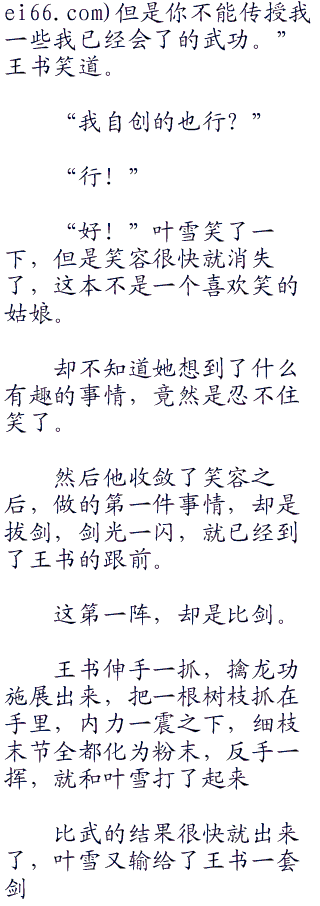 ei66.com)但是你不能传授我
一些我已经会了的武功。”
王书笑道。
“我自创的也行？”
“行！”
“好！”叶雪笑了一
下，但是笑容很快就消失
了，这本不是一个喜欢笑的
姑娘。
却不知道她想到了什么
有趣的事情，竟然是忍不住
笑了。
然后他收敛了笑容之
后，做的第一件事情，却是
拔剑，剑光一闪，就已经到
了王书的跟前。
这第一阵，却是比剑。
王书伸手一抓，擒龙功
施展出来，把一根树枝抓在
手里，内力一震之下，细枝
末节全都化为粉末，反手一
挥，就和叶雪打了起来
比武的结果很快就出来
了，叶雪又输给了王书一套
剑